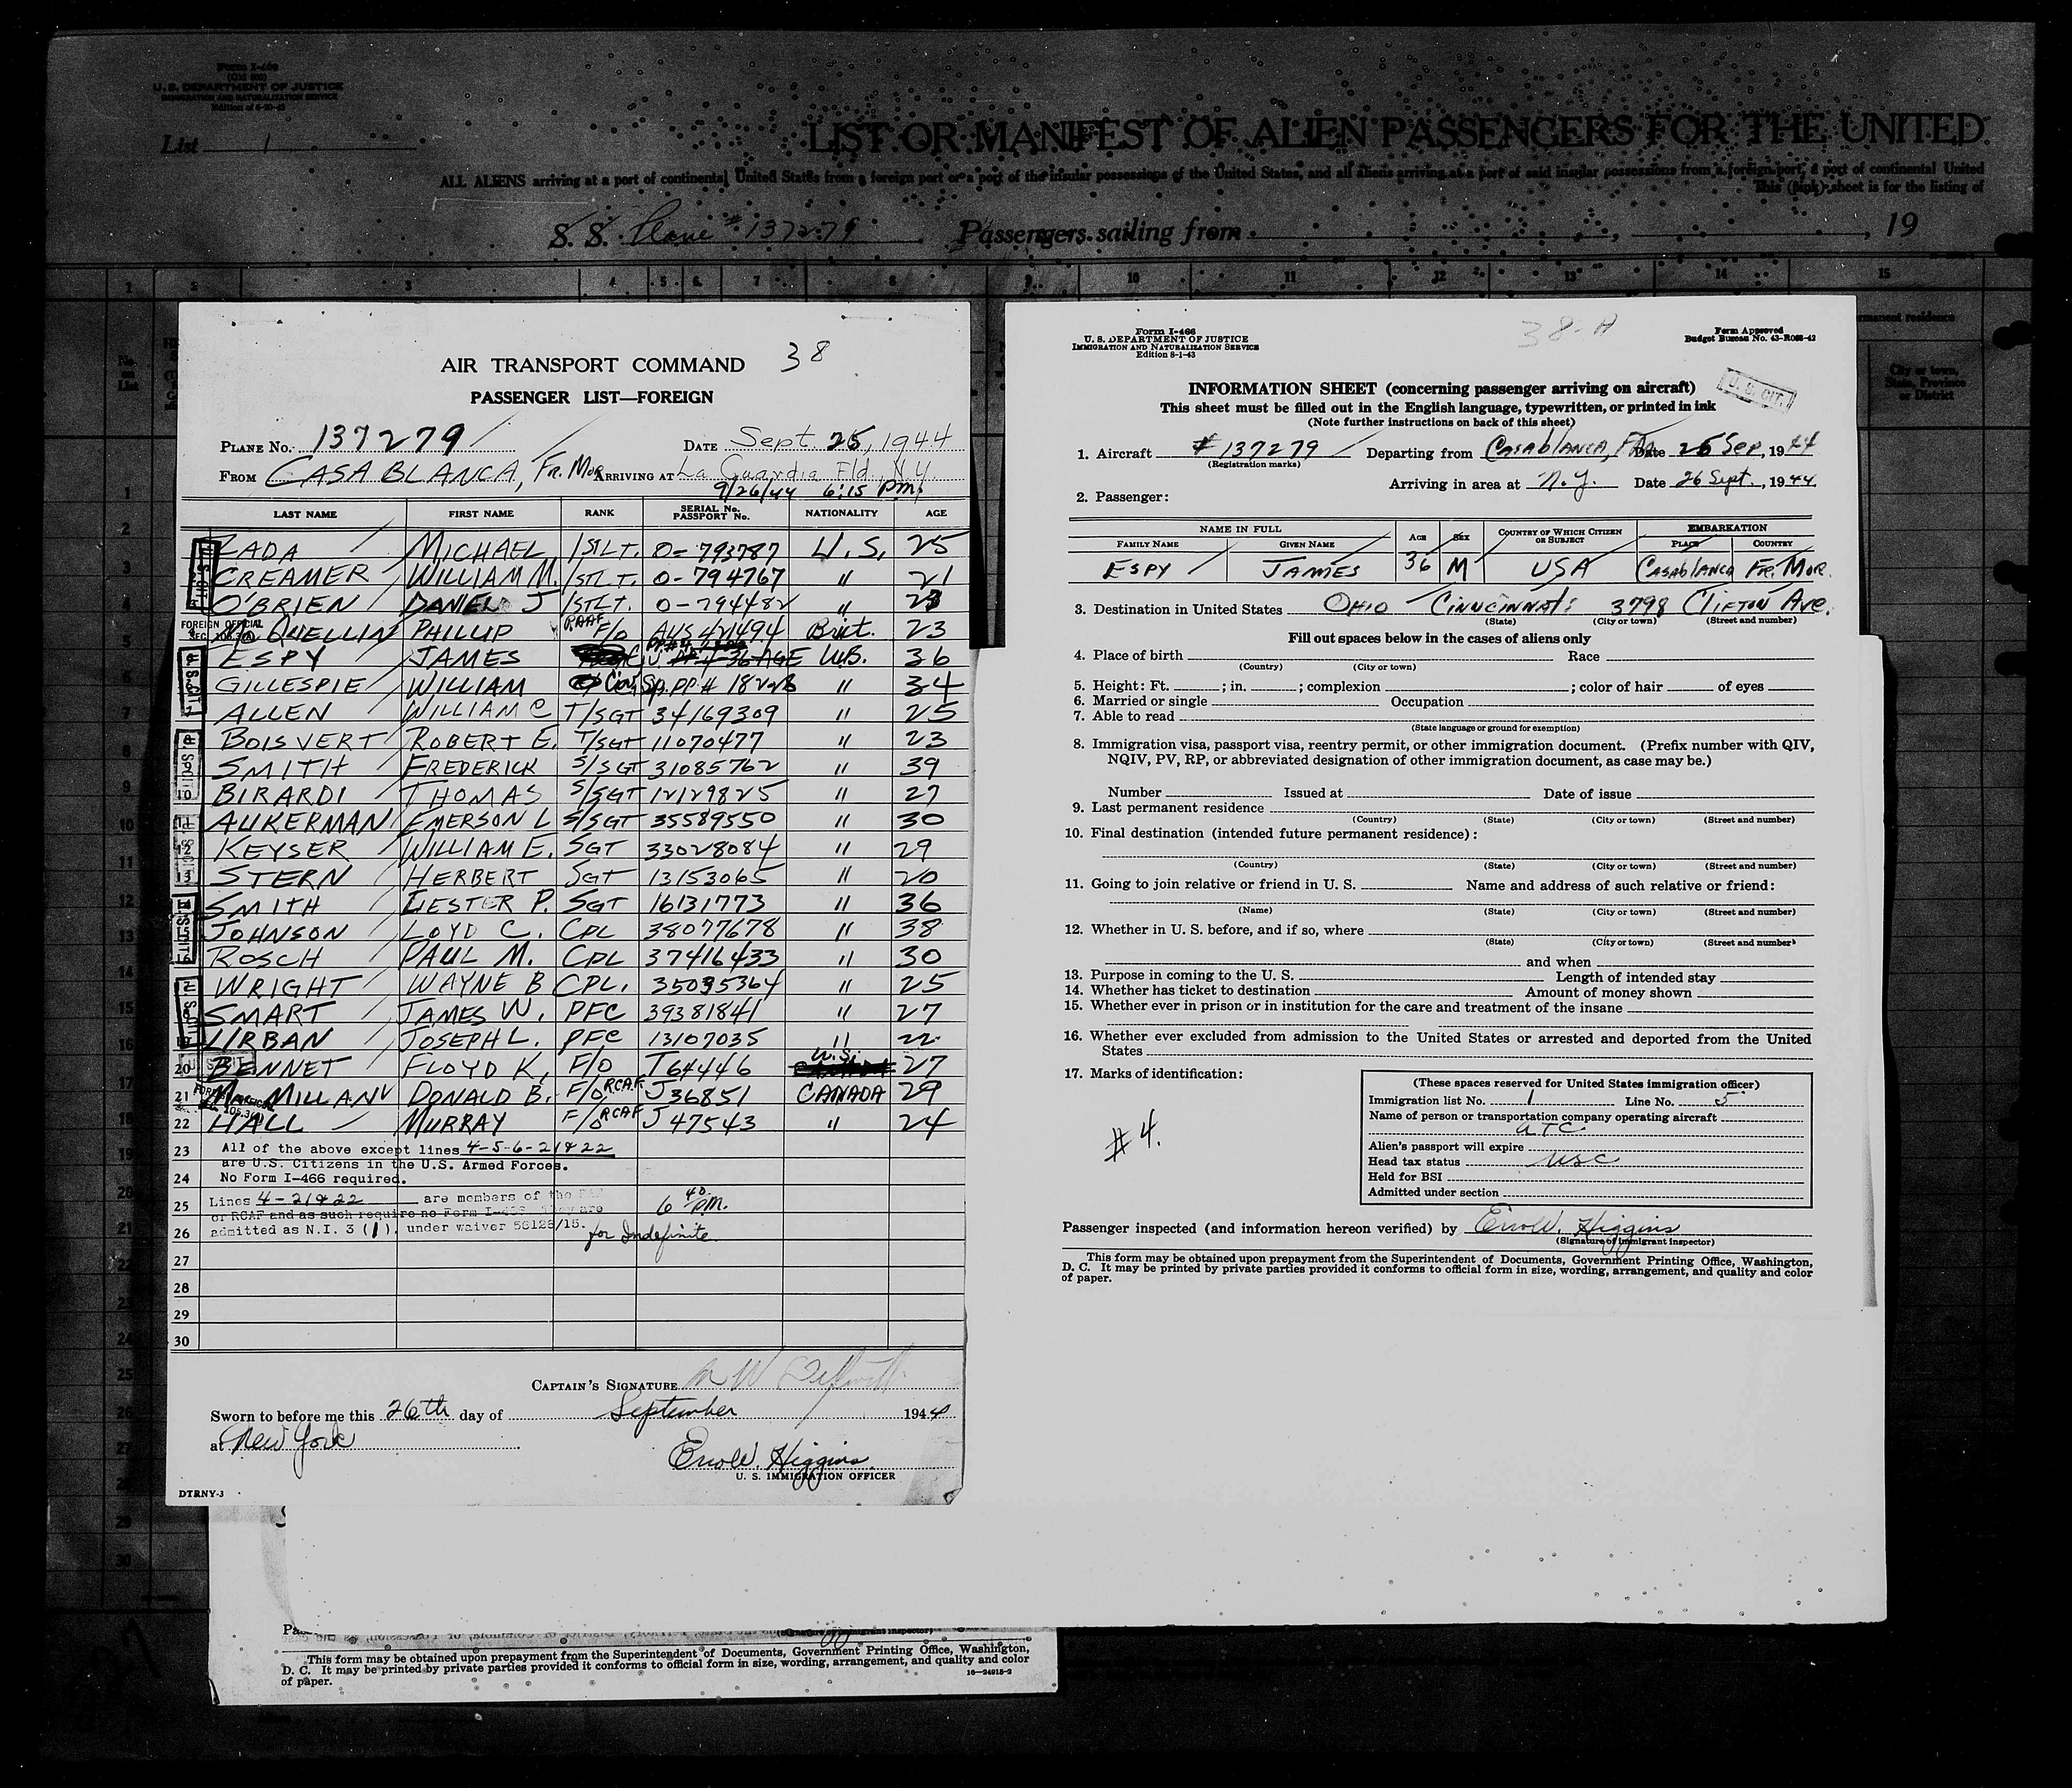 Form I-466
(Old 500)
U. S. DEPARTMENT OF JUSTICE
IMMIGRATION AND NATURALIZATION SERVICE
List 1
LIST OR MANIFEST OF ALIEN PASSENGERS FOR THE UNITED
ALL ALIENS arriving at a port of continental United States from a foreign port or a port of the insular possessions of the United States, and all aliens arriving at a port of said insular possessions from a foreign port, a port of continental United
This (pink) sheet is for the listing of
S. S. Plane # 137279 Passengers sailing from , , 19
1 2 3 4 5 6 7 8 9 10 11 12 13 14 15
No. on List
permanent residence
City or town, State, Province or District
AIR TRANSPORT COMMAND 38
PASSENGER LIST—FOREIGN
PLANE NO. 137279 DATE Sept. 25, 1944
FROM CASABLANCA, FR. MOR. ARRIVING AT La Guardia Fld., N.Y.
9/26/44 6:15 pm.
LAST NAME FIRST NAME RANK SERIAL NO. PASSPORT NO. NATIONALITY AGE
ZADA MICHAEL 1ST LT. O-793787 U.S. 25
CREAMER WILLIAM M. 1ST LT. O-794767 " 21
O'BRIEN DANIEL J 1ST LT. O-794482 " 23
FOREIGN OFFICIAL
McQUELLIN PHILLIP RAAF F/O AUS 421494 Brit. 23
ESPY JAMES 36
GILLESPIE WILLIAM Civ. PP# 18228 " 34
ALLEN WILLIAM C T/SGT 34169309 " 25
BOISVERT ROBERT E. T/SGT 11070477 " 23
SMITH FREDERICK S/SGT 31085762 " 39
10 BIRARDI THOMAS S/SGT 12129825 " 27
AUKERMAN EMERSON L S/SGT 35589550 " 30
12 KEYSER WILLIAM E. SGT 33028084 " 29
13 STERN HERBERT SGT 13153065 " 20
SMITH LESTER P. SGT 16131773 " 36
JOHNSON LOYD C. CPL 38077678 " 38
ROSCH PAUL M. CPL 37416433 " 30
WRIGHT WAYNE B CPL. 35035364 " 25
SMART JAMES W. PFC 39381841 " 27
URBAN JOSEPH L. PFC 13107035 " 22
20 BENNET FLOYD K, F/O T64446 U.S. 27
21 MacMILLAN DONALD B. F/O RCAF J36851 CANADA 29
22 HALL MURRAY F/O RCAF J47543 " 24
23 All of the above except lines 4-5-6-21&22
are U.S. Citizens in the U.S. Armed Forces.
24 No Form I-466 required.
25 Lines 4-21&22 are members of the
or RCAF and as such require no Form I-466. They are 6 40 P.M.
26 admitted as N.I. 3 (1). under waiver 56126/15. for Indefinite
27
28
29
30
CAPTAIN'S SIGNATURE
Sworn to before me this 26th day of September 1944
at New York
Errol W. Higgins
U. S. IMMIGRATION OFFICER
DTRNY-3
Form I-466
U. S. DEPARTMENT OF JUSTICE
IMMIGRATION AND NATURALIZATION SERVICE
Edition 8-1-43
38-A
Form Approved
Budget Bureau No. 43-R088-42
U. S. CIT.
INFORMATION SHEET (concerning passenger arriving on aircraft)
This sheet must be filled out in the English language, typewritten, or printed in ink
(Note further instructions on back of this sheet)
1. Aircraft # 137279 Departing from Casablanca, Date 25 Sep, 1944
(Registration marks)
Arriving in area at N.Y. Date 26 Sept., 1944.
2. Passenger:
NAME IN FULL AGE SEX COUNTRY OF WHICH CITIZEN OR SUBJECT EMBARKATION
FAMILY NAME GIVEN NAME PLACE COUNTRY
ESPY JAMES 36 M USA CASABLANCA FR. MOR.
3. Destination in United States OHIO CINNCINNATI 3798 CLIFTON AVE.
(State) (City or town) (Street and number)
Fill out spaces below in the cases of aliens only
4. Place of birth Race
(Country) (City or town)
5. Height: Ft. ; in. ; complexion ; color of hair of eyes
6. Married or single Occupation
7. Able to read
(State language or ground for exemption)
8. Immigration visa, passport visa, reentry permit, or other immigration document. (Prefix number with QIV,
NQIV, PV, RP, or abbreviated designation of other immigration document, as case may be.)
Number Issued at Date of issue
9. Last permanent residence
(Country) (State) (City or town) (Street and number)
10. Final destination (intended future permanent residence):
(Country) (State) (City or town) (Street and number)
11. Going to join relative or friend in U. S. Name and address of such relative or friend:
(Name) (State) (City or town) (Street and number)
12. Whether in U. S. before, and if so, where
(State) (City or town) (Street and number)
and when
13. Purpose in coming to the U. S. Length of intended stay
14. Whether has ticket to destination Amount of money shown
15. Whether ever in prison or in institution for the care and treatment of the insane
16. Whether ever excluded from admission to the United States or arrested and deported from the United
States
17. Marks of identification:
#4.
(These spaces reserved for United States immigration officer)
Immigration list No. 1 Line No. 5
Name of person or transportation company operating aircraft
ATC
Alien's passport will expire
Head tax status USC
Held for BSI
Admitted under section
Passenger inspected (and information hereon verified) by Errol W. Higgins
(Signature of immigrant inspector)
This form may be obtained upon prepayment from the Superintendent of Documents, Government Printing Office, Washington,
D. C. It may be printed by private parties provided it conforms to official form in size, wording, arrangement, and quality and color
of paper.
(Signature of immigrant inspector)
This form may be obtained upon prepayment from the Superintendent of Documents, Government Printing Office, Washington,
D. C. It may be printed by private parties provided it conforms to official form in size, wording, arrangement, and quality and color
of paper.
16—24915-2